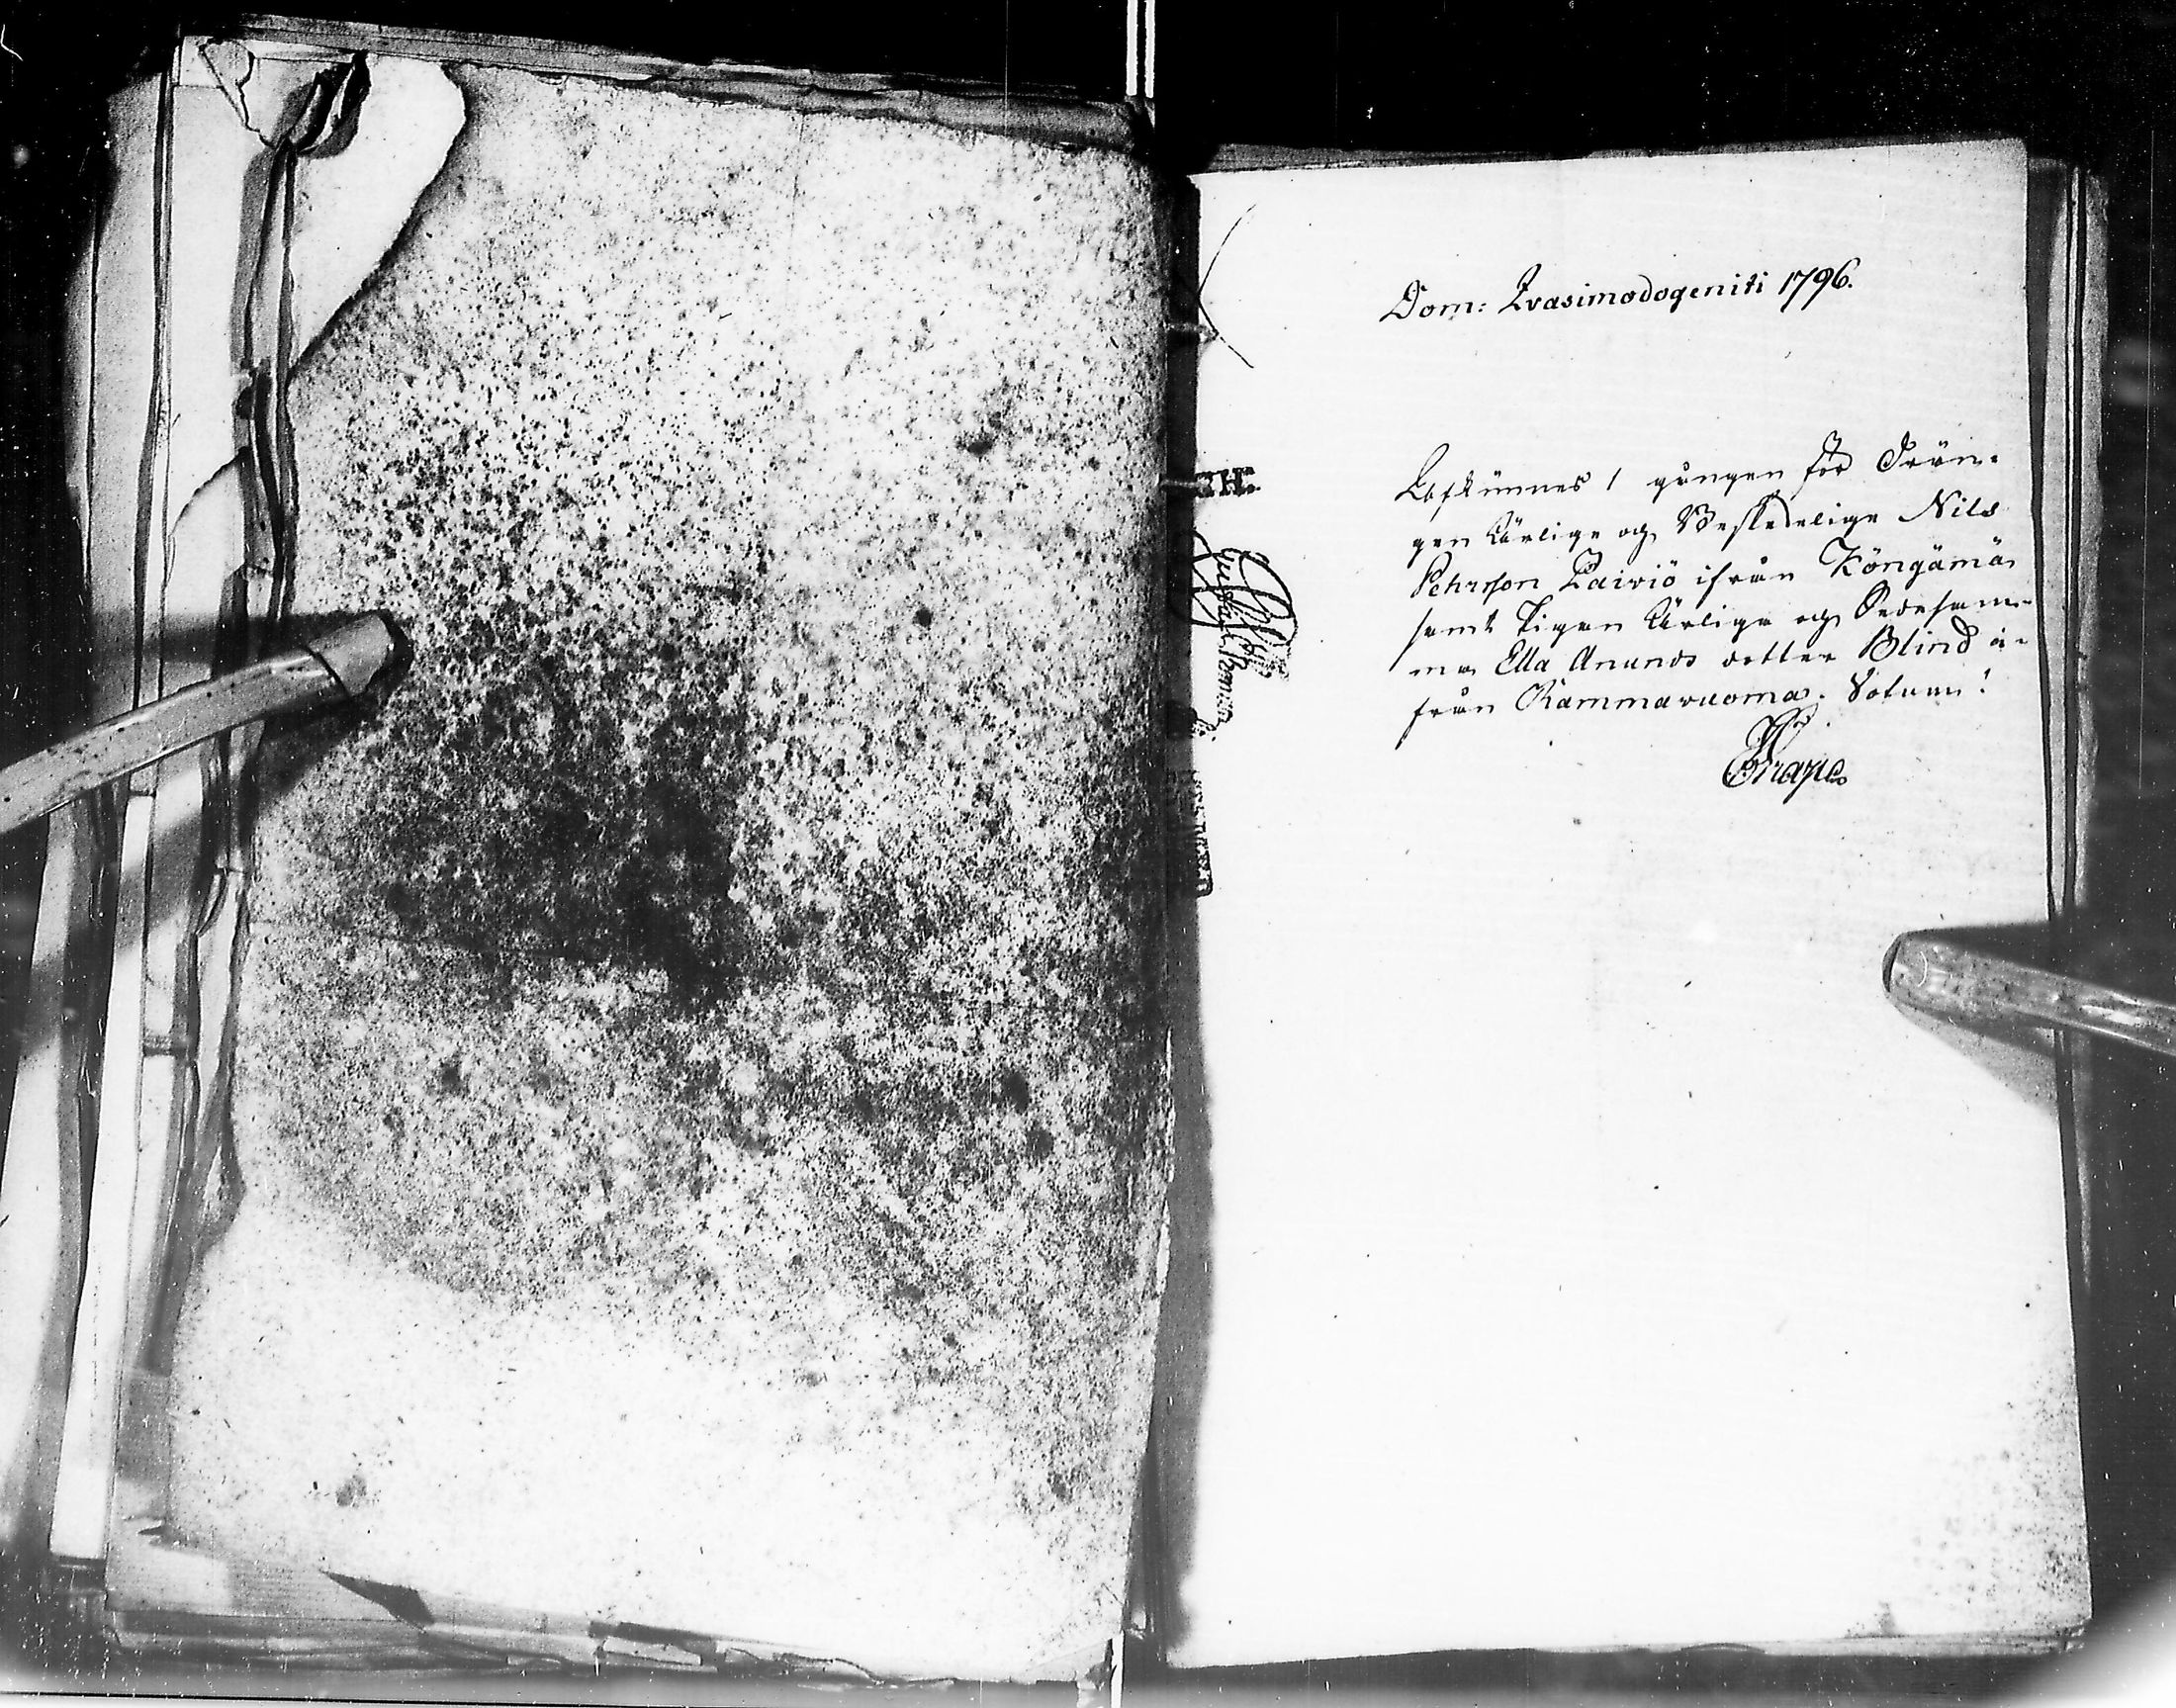 Dom: Qvasimodogeniti 1796.
Lyslinnes 1 gången för Drän-
gen Ärlige och Beskedelige Nils
Pehrsson Päiviö ifrån Köngämä,
samt Pigan Ärliga och Sedesam-
ma Ella Anunds dotter Blind i-
från Rammavuoma.